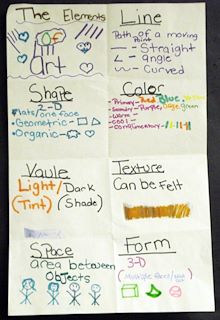 The Elements
OF
art
Line
Path of a moving
Point
— Straight
∠ angle
Curved
Shape
2-D
•Flats/one face
•Geometric-
•Organic-
Color
-Primary-Red Blue,
-Secondary-Purple, Orange, Green
-warm-
-cool-
-Complimentary-
Vaule
Light/Dark
(Tint) (Shade)
Texture
Can be Felt
Space
area between
Objects
Form
3-D
(Multiple faces/